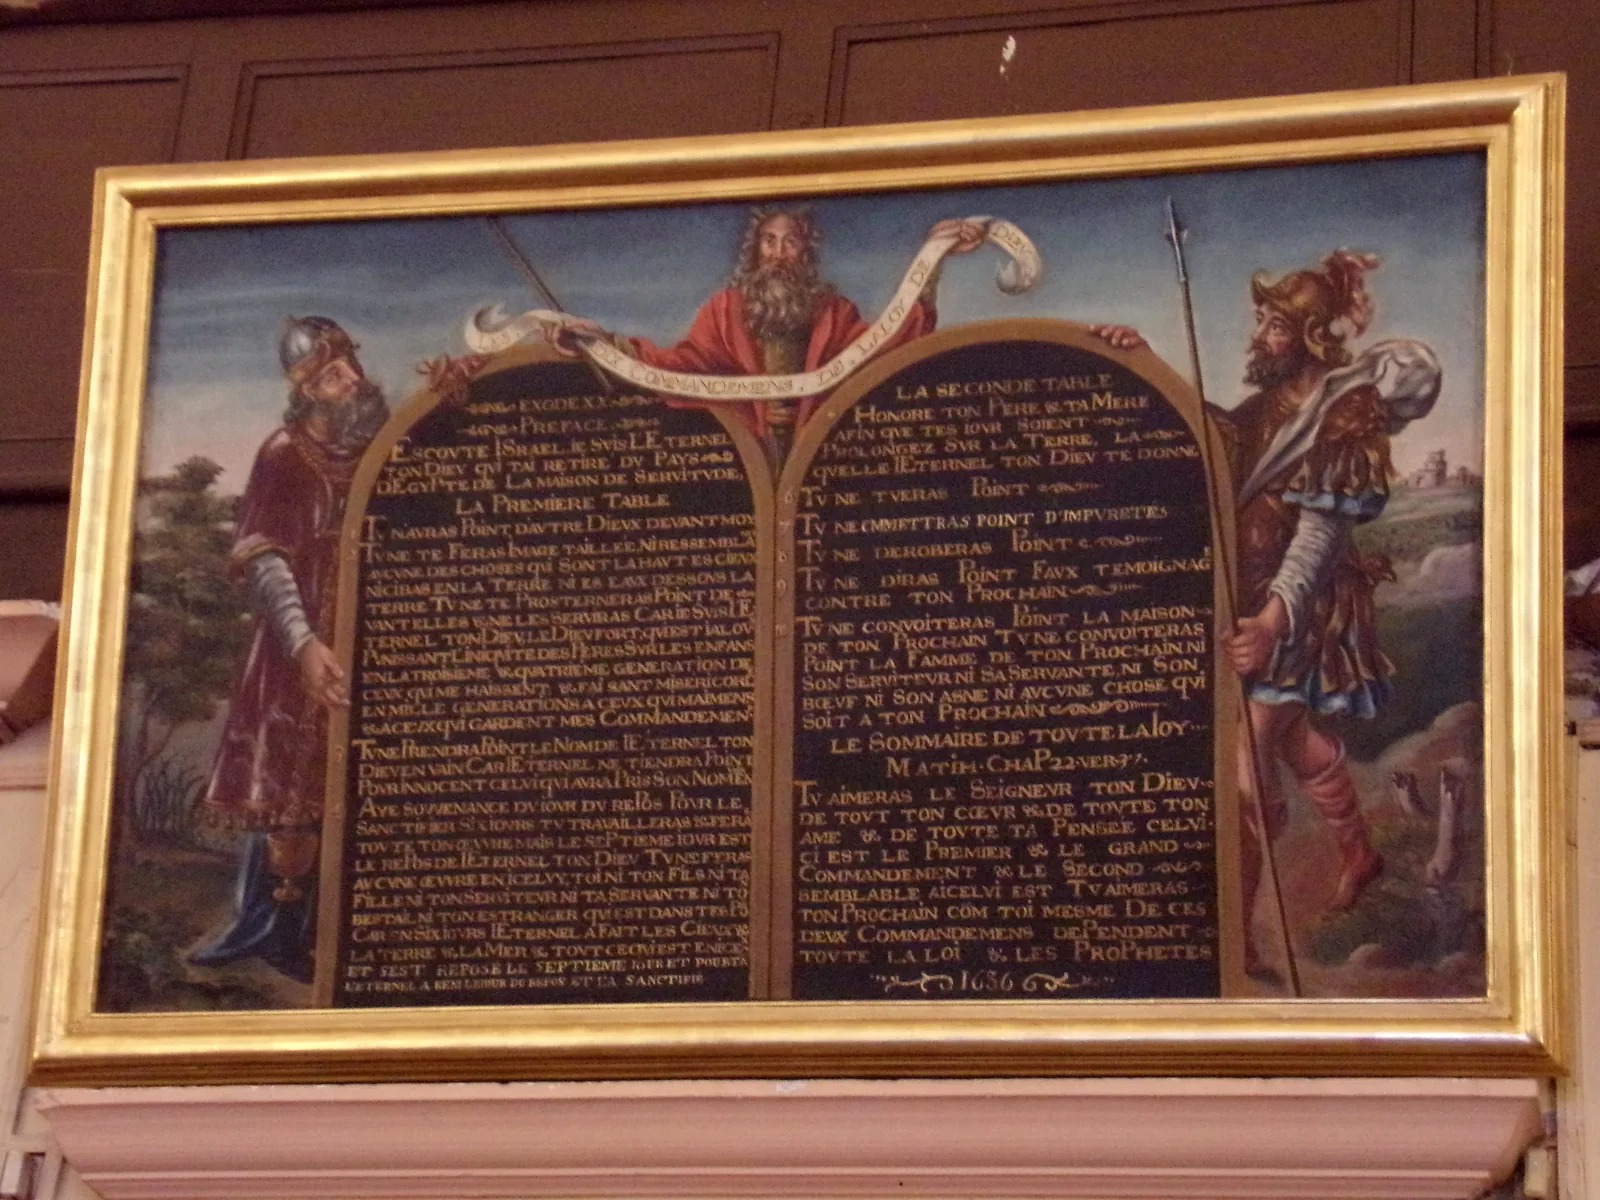 LES DIX COMMANDEMENS. DE. LA LOY DE DIEV
EXODE XX
PREFACE
ESCOVTE ISRAEL IE SVIS L'ETERNEL
TON DIEV QVI T'AI RETIRE DV PAYS
D'EGYPTE DE LA MAISON DE SERVITVDE,
LA PREMIERE TABLE
TV N'AVRAS POINT, D'AVTRE DIEVX DEVANT MOY
TV NE TE FERAS IMAGE TAILLEE, NI RESSEMBLĀ
AVCVNE DES CHOSES QVI SONT LA HAVT ES CIEVX
NI CI BAS EN LA TERRE NI ES EAVX DESSOVS LA
TERRE TV NE TE PROSTERNERAS POINT DE
VANT ELLES & NE LES SERVIRAS CAR IE SVIS L'E
TERNEL TON DIEV LE DIEV FORT, QVI EST IALOV
PVNISSANT L'INIQVITE DES PERES SVR LES ENFANS
EN LA TROISIEME & QVATRIEME GENERATION DE
CEVX QVI ME HAISSENT, & FAISANT MISERICORE
EN MILLE GENERATIONS A CEVX QVI M'AIMENS
& A CEVX QVI GARDENT MES COMMANDEMENS
TV NE PRENDRA POINT LE NOM DE L'ETERNEL TON
DIEV EN VAIN CAR L'ETERNEL NE TIENDRA POINT
POVR INNOCENT CELVI QVI AVRA PRIS SON NOM EN
AYE SOVVENANCE DV IOVR DV REPOS POVR LE
SANCTIFIER SIX IOVRS TV TRAVAILLERAS & FERA
TOVTE TON ŒVVRE MAIS LE SEPTIEME IOVR EST
LE REPOS DE L'ETERNEL TON DIEV TV NE FERAS
AVCVNE ŒVVRE EN ICELVY, TOI NI TON FILS NI TA
FILLE NI TON SERVITEVR NI TA SERVANTE NI TŌ
BESTAIL NI TON ESTRANGER QVI EST DANS TES PŌ
CAR EN SIX IOVRS L'ETERNEL A FAIT LES CIEVX &
LA TERRE & LA MER & TOVT CE QVI EST EN ICEX
ET S'EST REPOSE LE SEPTIEME IOUR ET POURTA
L'ETERNEL A BENI LE IOUR DU REPOS ET L'A SANCTIFIE
LA SECONDE TABLE
HONORE TON PERE & TA MERE
AFIN QVE TES IOVR SOIENT
PROLONGEZ SVR LA TERRE, LA
QVELLE L'ETERNEL TON DIEV TE DONNE
6 TV NE TVERAS POINT
7 TV NE CMMETTRAS POINT D'IMPVRETÉS
8 TV NE DEROBERAS POINT
9 TV NE DIRAS POINT FAVX TEMOIGNAGE
CONTRE TON PROCHAIN
10 TV NE CONVOITERAS POINT LA MAISON
DE TON PROCHAIN TV NE CONVOITERAS
POINT LA FAMME DE TON PROCHAIN NI
SON SERVITEVR NI SA SERVANTE, NI SON
BŒVF NI SON ASNE NI AVCVNE CHOSE QVI
SOIT A TON PROCHAIN
LE SOMMAIRE DE TOVTE LA LOY
MATTH. CHAP 22. VER 37.
TV AIMERAS LE SEIGNEVR TON DIEV
DE TOVT TON CŒVR & DE TOVTE TON
AME & DE TOVTE TA PENSEE CELVI
CI EST LE PREMIER & LE GRAND
COMMANDEMENT & LE SECOND
SEMBLABLE A ICELVI EST TV AIMERAS
TON PROCHAIN COM TOI MESME DE CES
DEVX COMMANDEMENS DEPENDENT
TOVTE LA LOI & LES PROPHETES
1636